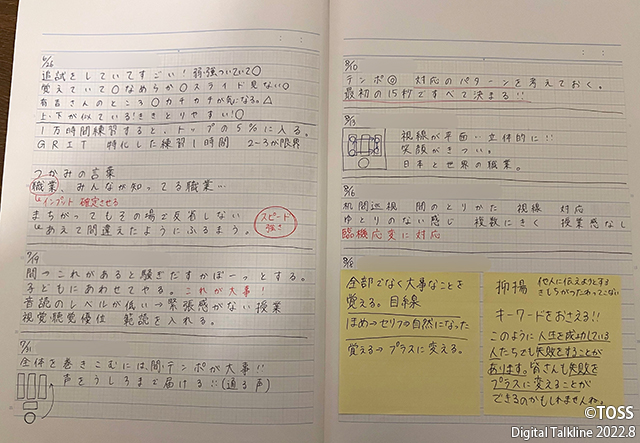 6/26
追試をしていてすごい！勉強ついていて○
覚えていて○なめらか○スライド見ない○
有吉さんのところ○カチカチが気になる。△
上・下が似ている！ききとりやすい！○
1万時間練習すると、トップの5%に入る。
GRIT 特化した練習1時間 2〜3が限界
つかみの言葉
職業、みんなが知ってる職業…
↳インプット確定させる
まちがってもその場で反省しない
↳あえて間違えたようにふるまう。
スピード
強さ
7/19
間→これがあると騒ぎだすかぼーっとする。
子どもにあわせてやる。これが大事！
音読のレベルが低い→緊張感がない授業
視覚・聴覚優位 範読を入れる。
7/31
全体を巻きこむには、間・テンポが大事！！
声をうしろまで届ける！！（通る声）
8/10
テンポ◎ 対応のパターンを考えておく。
最初の15秒ですべて決まる！！
8/13
視線が平面…立体的に！！
笑顔がきつい。
日本と世界の職業。
8/16
机間巡視 間のとりかた 視線 対応
ゆとりのない感じ 複数にきく 授業感なし
臨機応変に対応
全部でなく大事なことを
覚える。目線
ほめ→セリフ→自然になった
覚える→プラスに変える。
抑揚 他人に伝えようとする
きもちがつたわってこない
キーワードをおさえる！！
このように人生を成功している
人たちでも失敗をすることが
あります。皆さんも失敗を
プラスに変えることが
できるのかもしれませんね。
©TOSS
Digital Talkline 2022.8